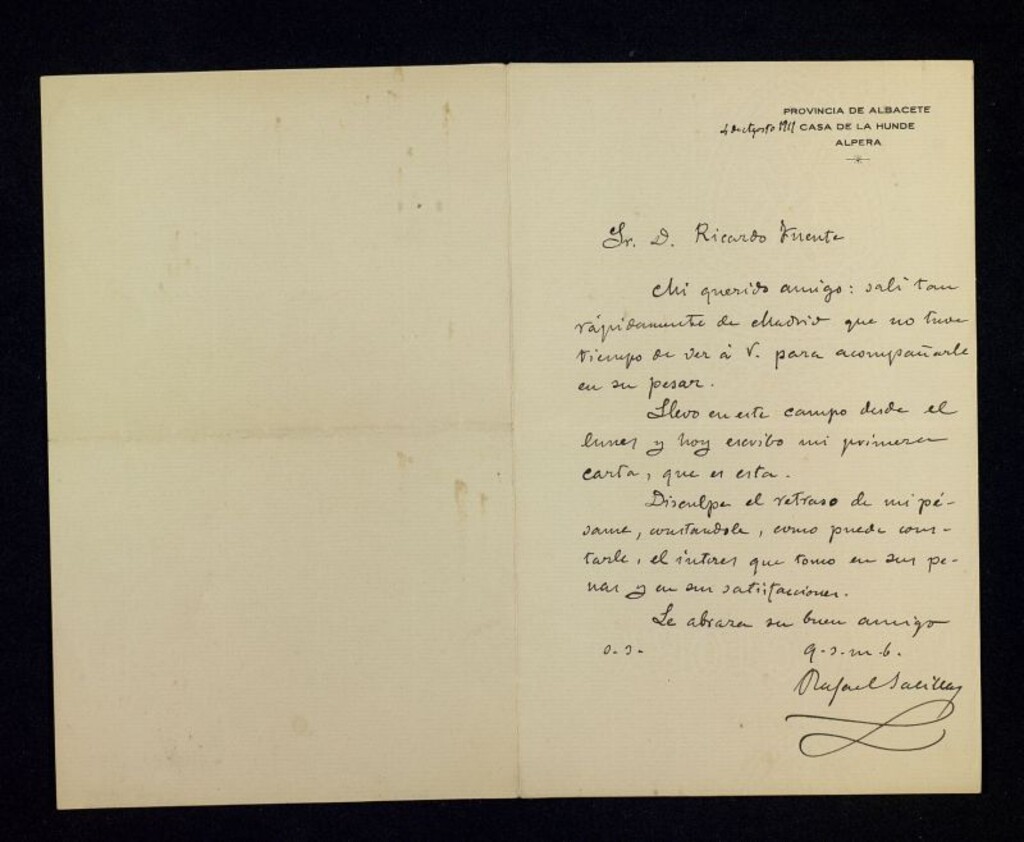 PROVINCIA DE ALBACETE
4 de Agosto 1911 CASA DE LA HUNDE
ALPERA
Sr. D. Ricardo Fuente
Mi querido amigo: salí tan
rápidamente de Madrid que no tuve
tiempo de ver á V. para acompañarle
en su pesar.
Llevo en este campo desde el
lunes y hoy escribo mi primera
carta, que es esta.
Disculpe el retraso de mi pé-
same, constandole, como puede cons-
tarle, el interes que tomo en sus pe-
nas y en sus satisfacciones.
Le abraza su buen amigo
s. s. q. s. m. b.
Rafael Salillas